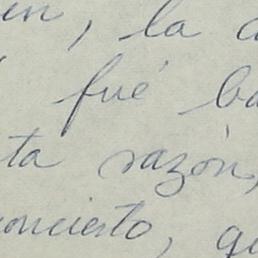 en, la
fué ba
ta razón,
concierto, qu